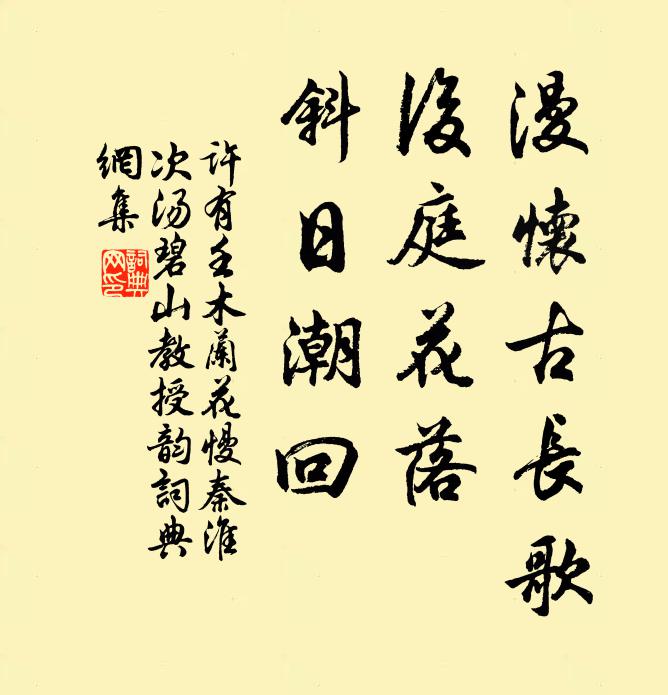 漫懷古長歌
後庭花落
斜日潮回
許有壬木蘭花慢秦淮
次汤碧山教授韵詞典
網集
詞典
网印